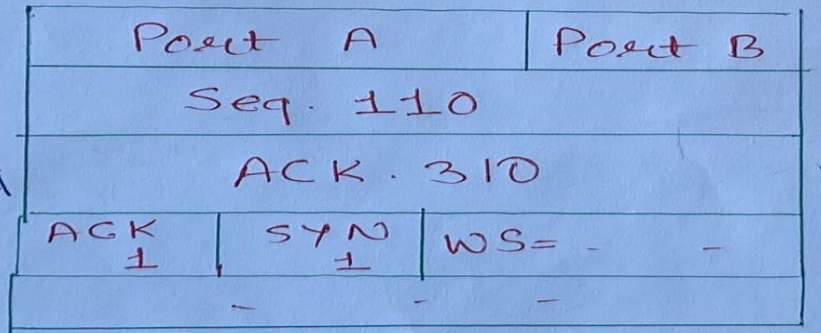 Port A Port B
Seq. 110
ACK. 310
ACK 1 SYN 1 WS= - -
- - -